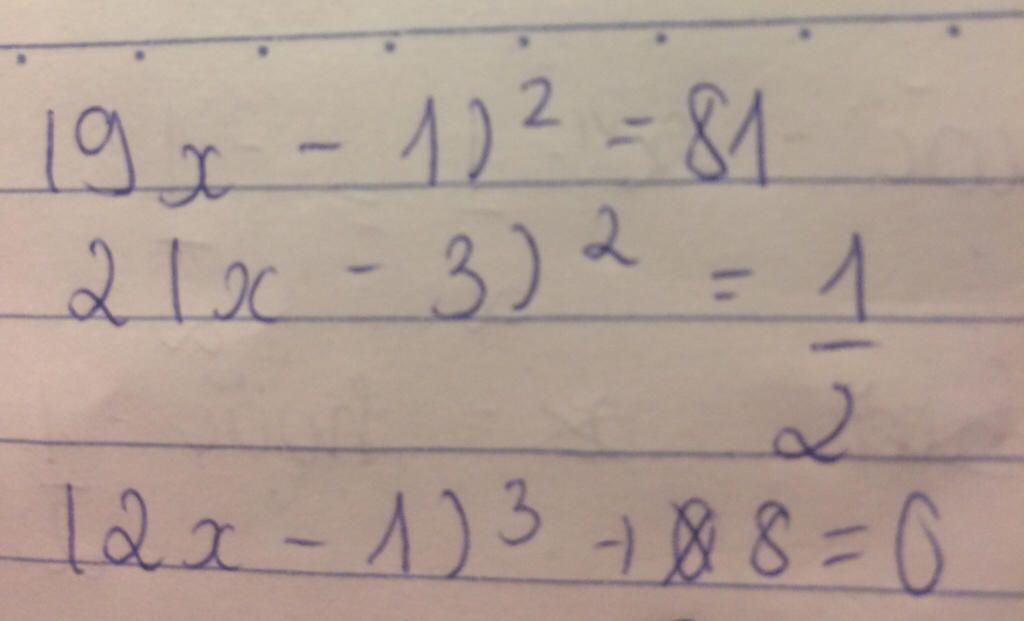 (9x - 1)² = 81
2(x - 3)² = 1/2
(2x - 1)³ + 8 = 0